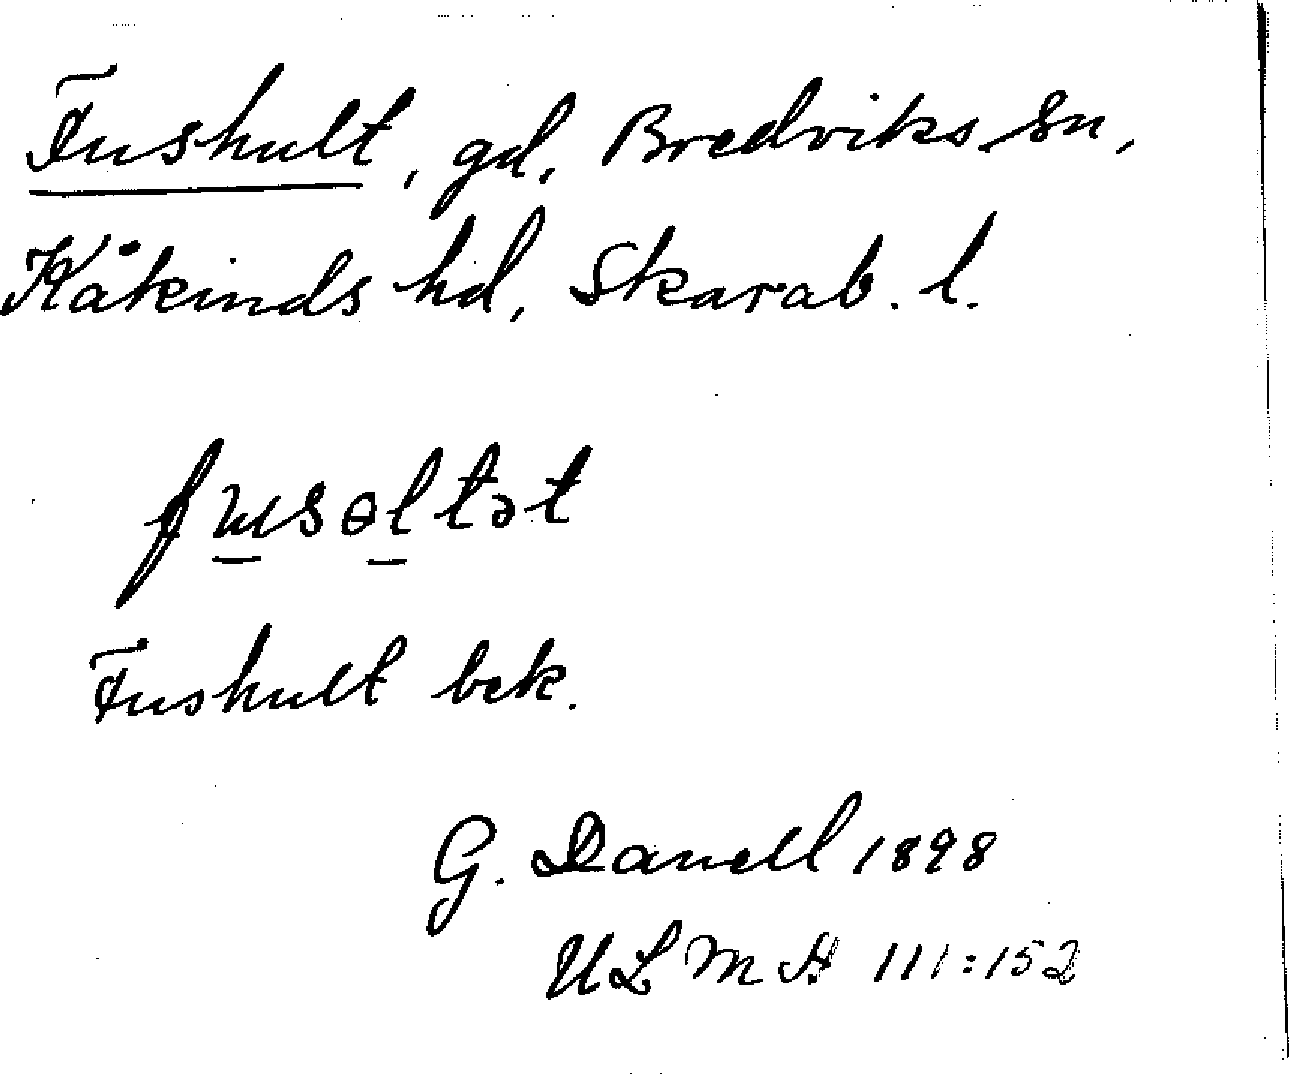 Fushult, gd, Bredviks sn,
Kåkinds hd, Skarab. l.
fɯsɵltət
Fushult bek.
G. Danell 1898
ULMA 111:152